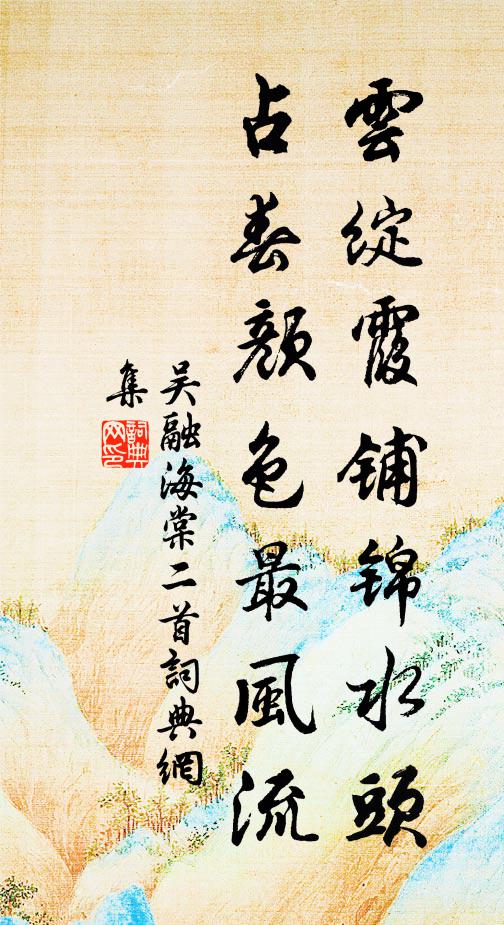 雲綻霞鋪錦水頭
占春顏色最風流
吳融海棠二首詞典網
集
詞典
网印